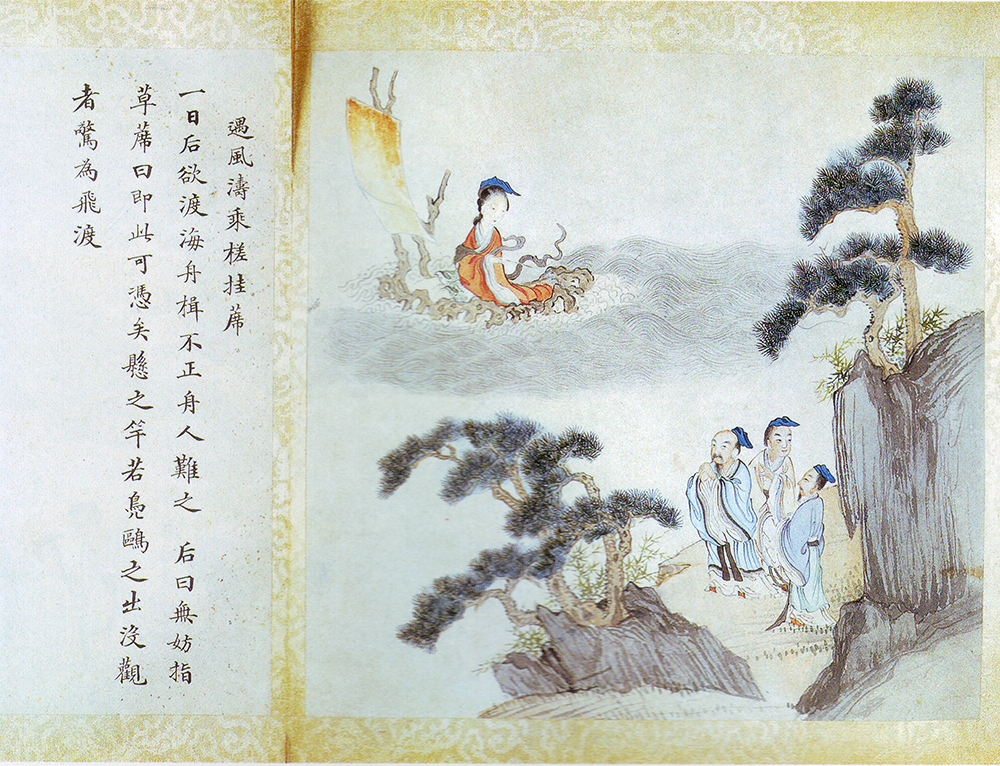 遇風濤乘槎挂蓆
一日后欲渡海舟楫不正舟人難之 后曰無妨指
草蓆曰即此可憑矣懸之竿若鳧鷗之出没觀
者驚為飛渡